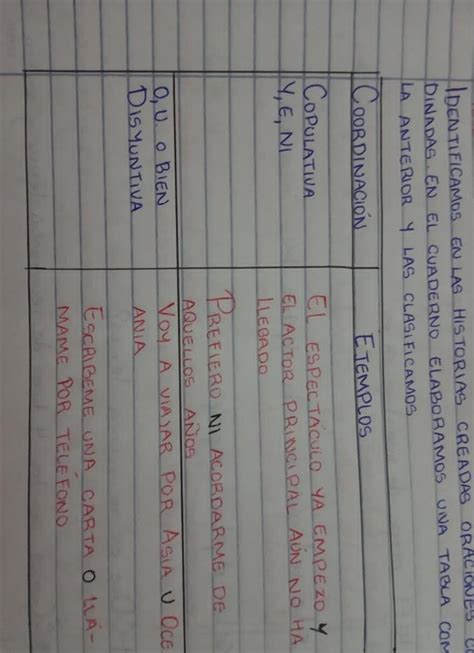 IDENTIFICAMOS EN LAS HISTORIAS CREADAS ORACIONES
DINADAS. EN EL CUADERNO ELABORAMOS UNA TABLA COM
LA ANTERIOR Y LAS CLASIFICAMOS
COORDINACIÓN EJEMPLOS
COPULATIVA
Y, E, NI
EL ESPECTÁCULO YA EMPEZO Y
EL ACTOR PRINCIPAL AÚN NO HA
LLEGADO
PREFIERO NI ACORDARME DE
AQUELLOS AÑOS
O, U. O BIEN
DISYUNTIVA
VOY A VIAJAR POR ASIA U OCE
ANIA
ESCRIBEME UNA CARTA O LLÁ-
MAME POR TELÉFONO